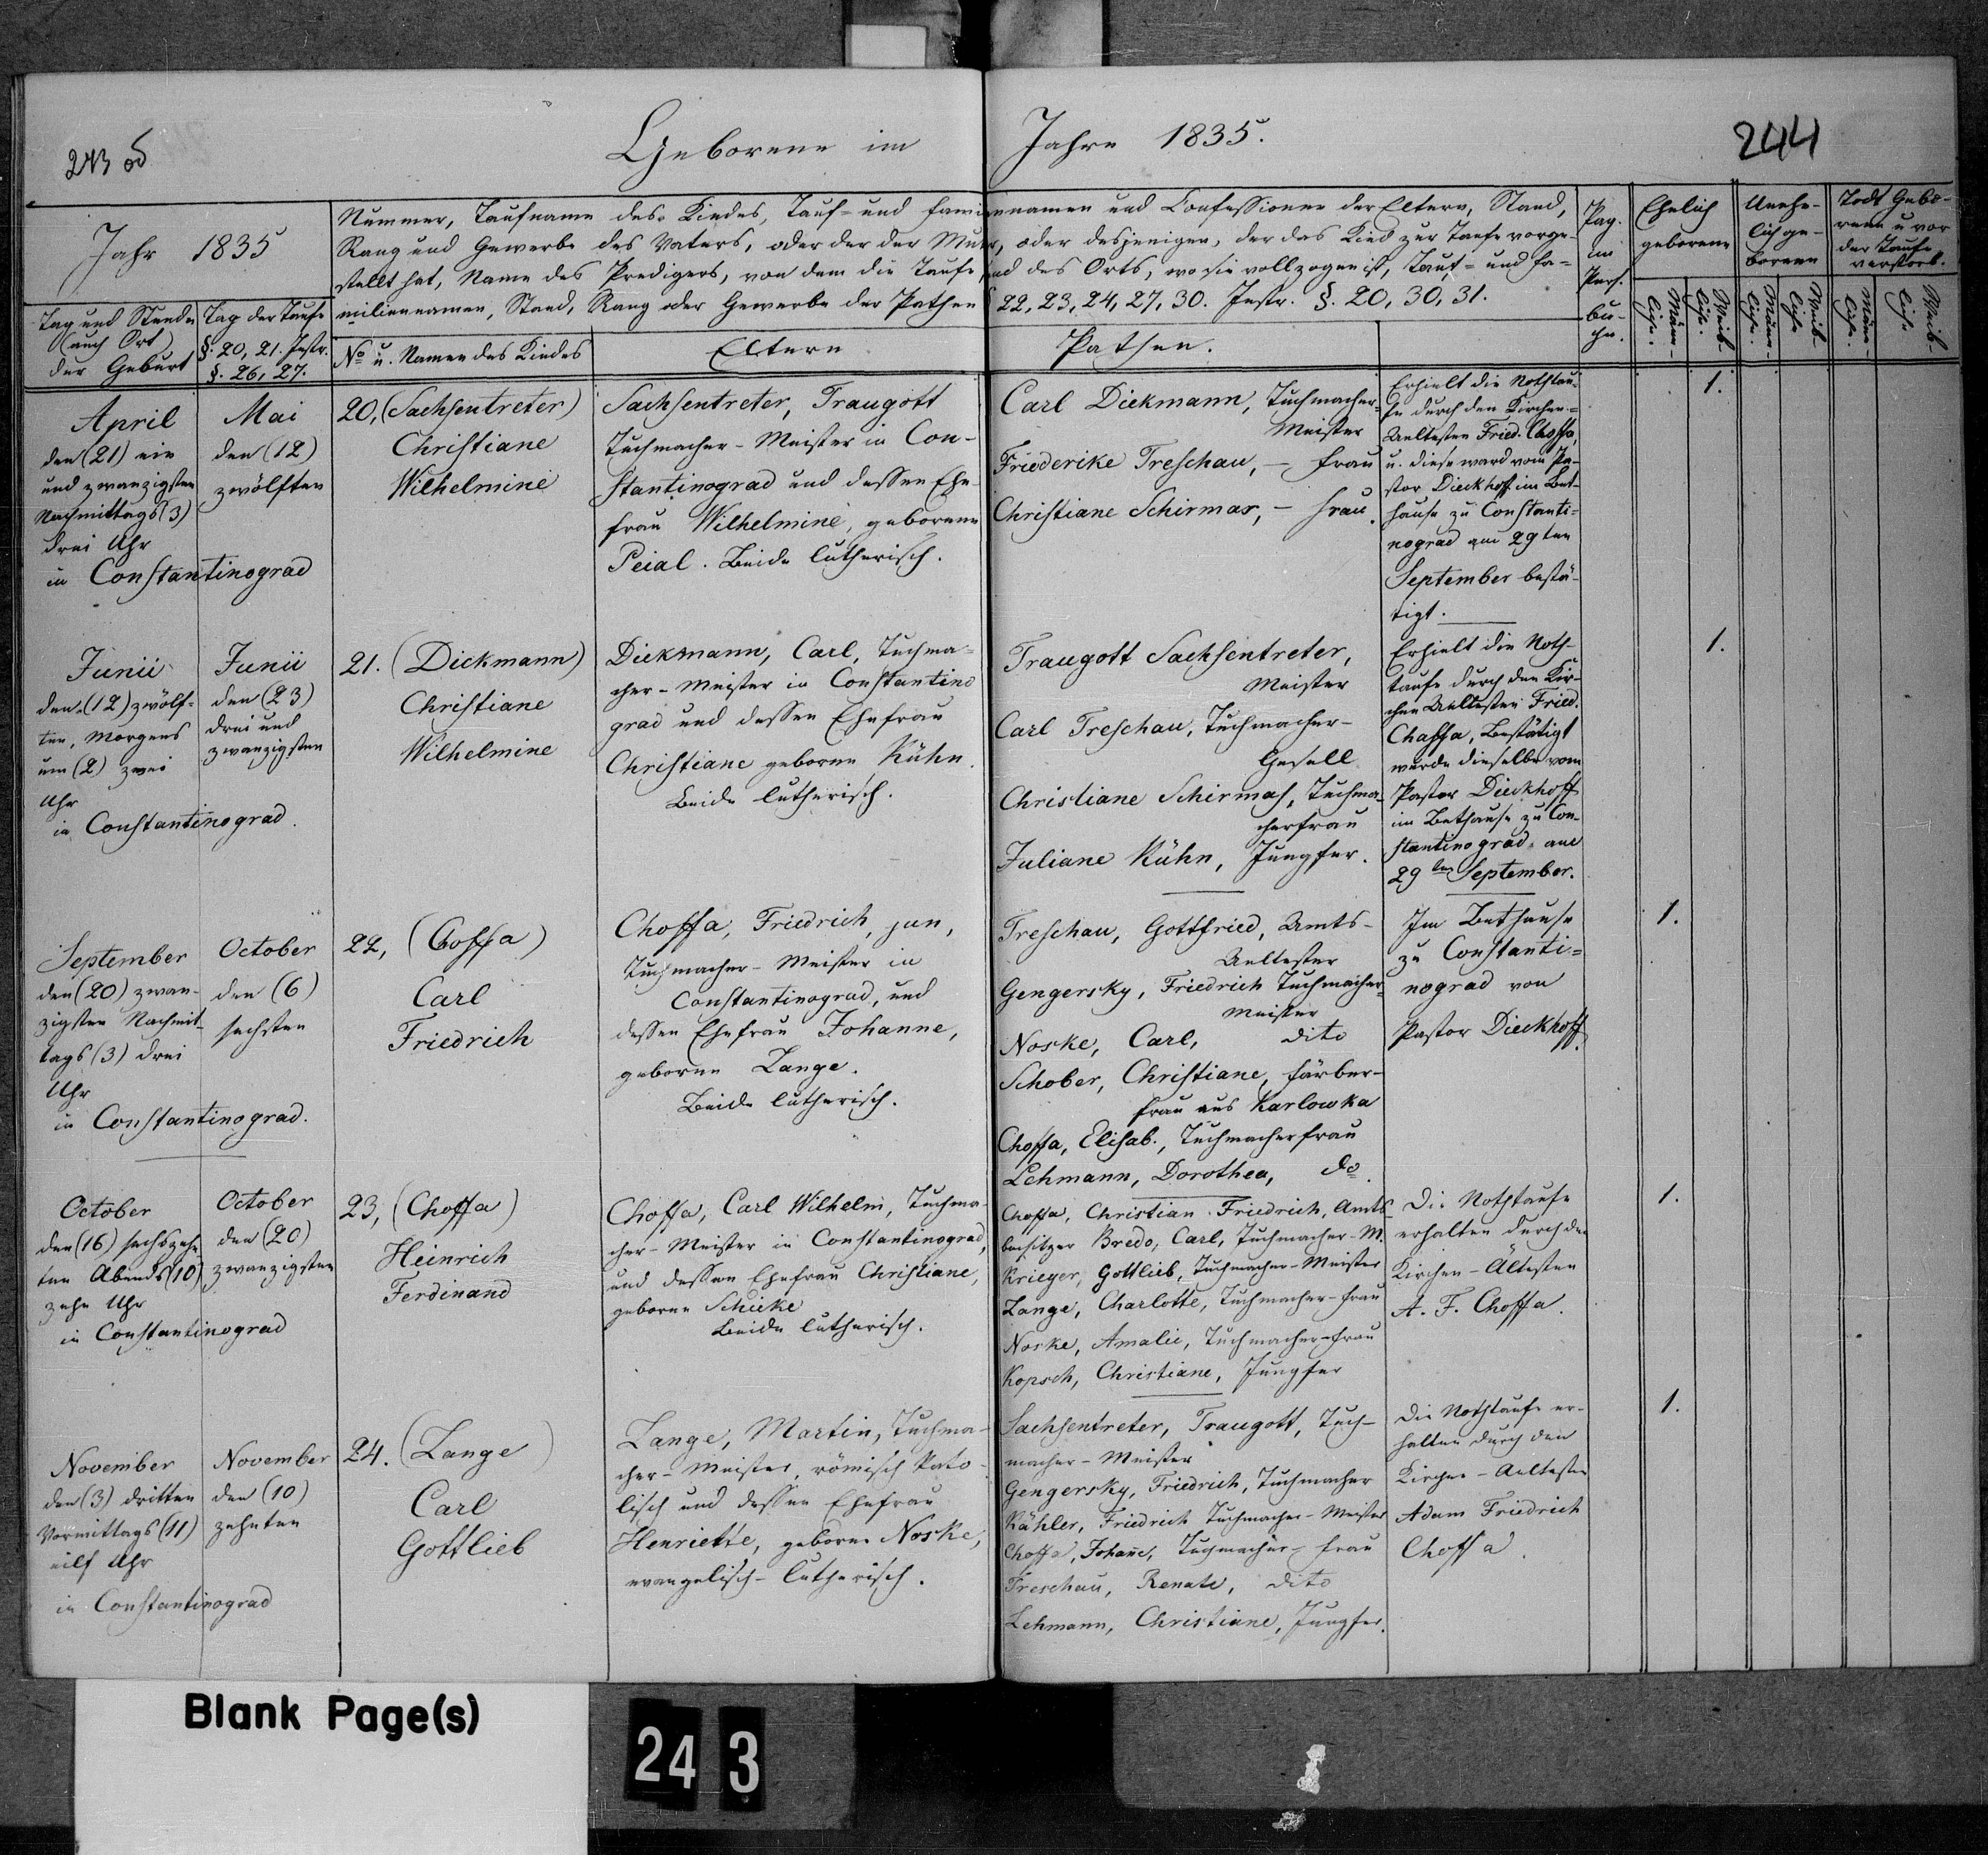 243 od
Geborene im Jahre 1835.
244
Jahr 1835
Nummer, Taufname des Kindes, Tauf- und Familiennamen und Confessionen der Eltern, Stand,
Rang und Gewerbe des Vaters, oder der der Mutter, oder desjenigen, der das Kind zur Taufe vorge-
stellt hat, Name des Predigers, von dem die Taufe, und des Orts, wo sie vollzogen ist, Tauf- und Fa-
miliennamen, Stand, Rang oder Gewerbe der Pathen § 22, 23, 24, 27, 30. Instr. §. 20, 30, 31.
Pag.
im
Pers.
bu-
che.
Ehelich
geborene
Unehe-
lich ge-
borene
Todt Gebo-
rene u vor
der Taufe
verstorb.
Männ-
lich.
Weib-
lich.
Männ-
lich.
Weib-
lich
Männ-
lich.
Weib-
lich
Tag und Stunde
(auch Ort)
der Geburt
Tag der Taufe
§. 20, 21. Instr.
§. 26, 27.
No u. Namen des Kindes
Eltern
Pathen.
April
den (21) ein
und zwanzigsten
Nachmittags (3)
drei Uhr
in Constantinograd
Mai
den (12)
zwölften
20, (Sachsentreter)
Christiane
Wilhelmine
Sachsentreter, Traugott
Tuchmacher-Meister in Con-
stantinograd und dessen Ehe-
frau Wilhelmine, geborene
Peial. Beide lutherisch.
Carl Diekmann, Tuchmacher-
Meister
Friederike Treschau, - Frau
Christiane Schirmar, - Frau.
Erhielt die Nothtau-
fe durch den Kirchen-
Aeltesten Fried. Choffa,
u. diese ward vom Pa-
stor Dieckhoff im Bet-
hause zu Constanti-
nograd am 29ten
September bestä-
tigt.
1.
Junii
den (12) zwölf-
ten, Morgens
um (2) zwei
Uhr
in Constantinograd.
Junii
den (23)
drei und
zwanzigsten
21. (Dickmann)
Christiane
Wilhelmine
Diekmann, Carl, Tuchma-
cher-Meister in Constantino
grad und dessen Ehefrau
Christiane geborne Kühn.
Beide lutherisch.
Traugott Sachsentreter,
Meister
Carl Treschau, Tuchmacher-
Gesell
Christiane Schirmas, Tuchma-
cherfrau
Juliane Kühn, Jungfer.
Erhielt die Noth-
taufe durch den Kir-
chen Aeltesten Fried.
Chaffa, Bestätigt
wurde dieselbe vom
Pastor Dieckhoff
im Bethause zu Con-
stantinograd am
29ten September.
1.
September
den (20) zwan-
zigsten Nachmit-
tags (3) drei
Uhr
in Constantinograd.
October
den (6)
sechsten
22, (Coffa)
Carl
Friedrich
Choffa, Friedrich, jun,
Tuchmacher-Meister in
Constantinograd, und
dessen Ehefrau Johanne,
geborne Lange.
Beide lutherisch.
Treschau, Gottfried, Amts-
Aeltester
Gengersky, Friedrich Tuchmacher-
Meister
Noske, Carl, dito
Schober, Christiane, Färber-
frau aus Karlowka
Choffa, Elisab., Tuchmacherfrau
Lehmann, Dorothea, do.
Im Bethause
zu Constanti-
nograd von
Pastor Dieckhoff.
1.
October
den (16) sechszehn
ten Abends (10)
zehn Uhr
in Constantinograd
October
den (20)
zwanzigsten
23, (Choffa)
Heinrich
Ferdinand
Choffa, Carl Wilhelm, Tuchma-
cher-Meister in Constantinograd,
und dessen Ehefrau Christiane,
geborne Schicke
Beide lutherisch.
Choffa, Christian Friedrich, Amts-
beisitzer Bredo, Carl, Tuchmacher-M.
Krieger, Gottlieb, Tuchmacher-Meister
Lange, Charlotte, Tuchmacher-Frau
Noske, Amalie, Tuchmacher-Frau
Kopsch, Christiane, Jungfer
Die Nothtaufe
erhalten durch den
Kirchen-Ältesten
A. F. Choffa.
1.
November
den (3) dritten
Vormittags (11)
eilf Uhr
in Constantinograd
November
den (10)
zehnten
24. (Lange)
Carl
Gottlieb
Lange, Martin, Tuchma-
cher-Meister, römisch kato-
lisch und dessen Ehefrau
Henriette, geborne Noske,
evangelisch-lutherisch.
Sachsentreter, Traugott, Tuch-
macher-Meister
Gengersky, Friedrich, Tuchmacher
Kähler, Friedrich Tuchmacher-Meister
Choffa, Johane, Tuchmacher-frau
Treschau, Renate, dito
Lehmann, Christiane, Jungfer.
Die Nothtaufe er-
halten durch den
Kirchen-Aeltesten
Adam Friedrich
Choffa.
1.
Blank Page(s)
243